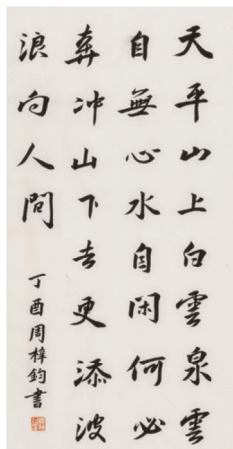 天平山上白雲泉雲
自無心水自閑何必
奔冲山下去更添波
浪向人間
丁酉周梓鈞書